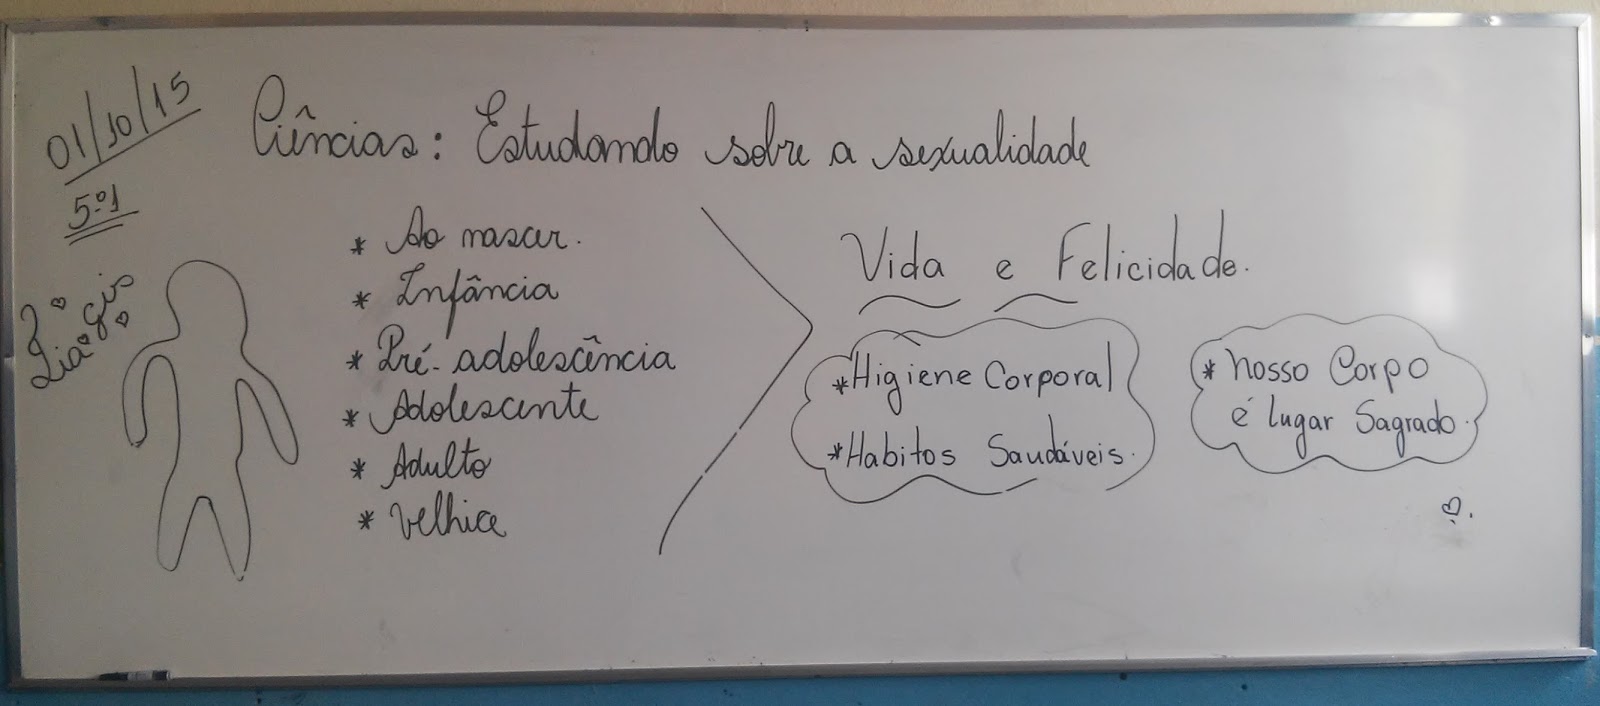 01/10/15
Ciências: Estudando sobre a sexualidade
5º1
* Ao nascer.
* Infância
* Pré-adolescência
* Adolescente
* Adulto
* Velhice
Vida e Felicidade.
*Higiene Corporal
*Habitos Saudáveis.
* Nosso Corpo
é lugar Sagrado.